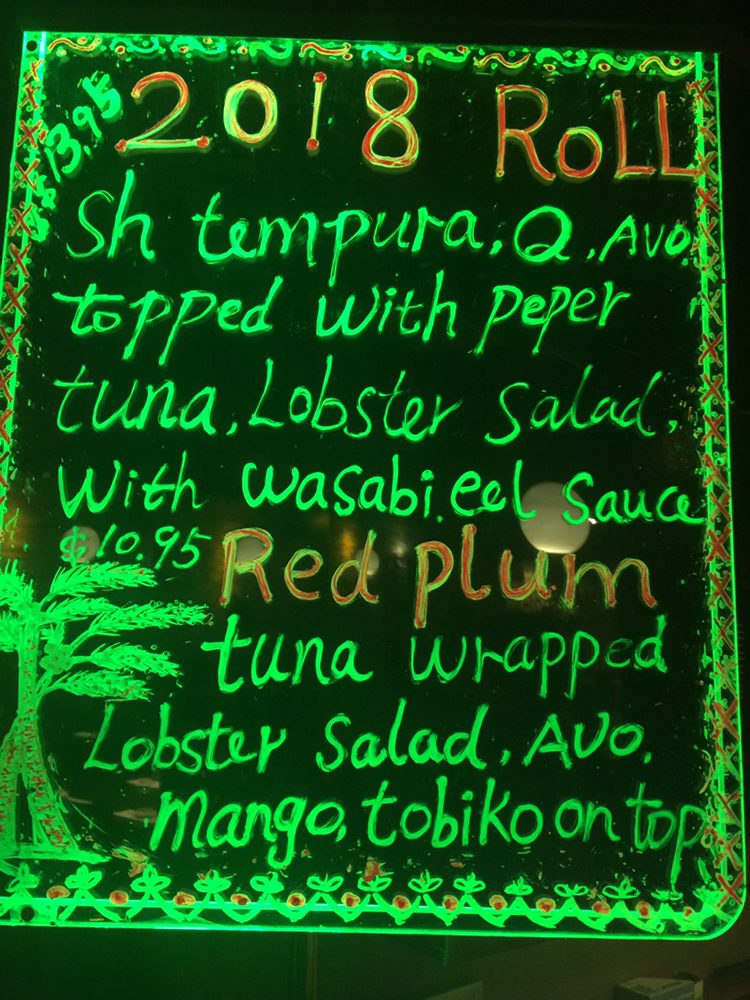 $13.95
2018 ROLL
Sh tempura, Q, Avo,
topped with peper
tuna, Lobster salad,
with wasabi, eel sauce
$10.95 Red plum
tuna wrapped
Lobster salad, Avo,
mango, tobiko on top